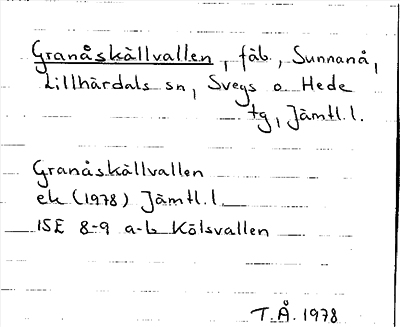 Granåskällvallen, fäb., Sunnanå,
Lillhärdals sn, Svegs o Hede
tg, Jämtl. l.
Granåskällvallen
ek (1978) Jämtl. l.
15E 8-9 a-b Kölsvallen
T.Å. 1978